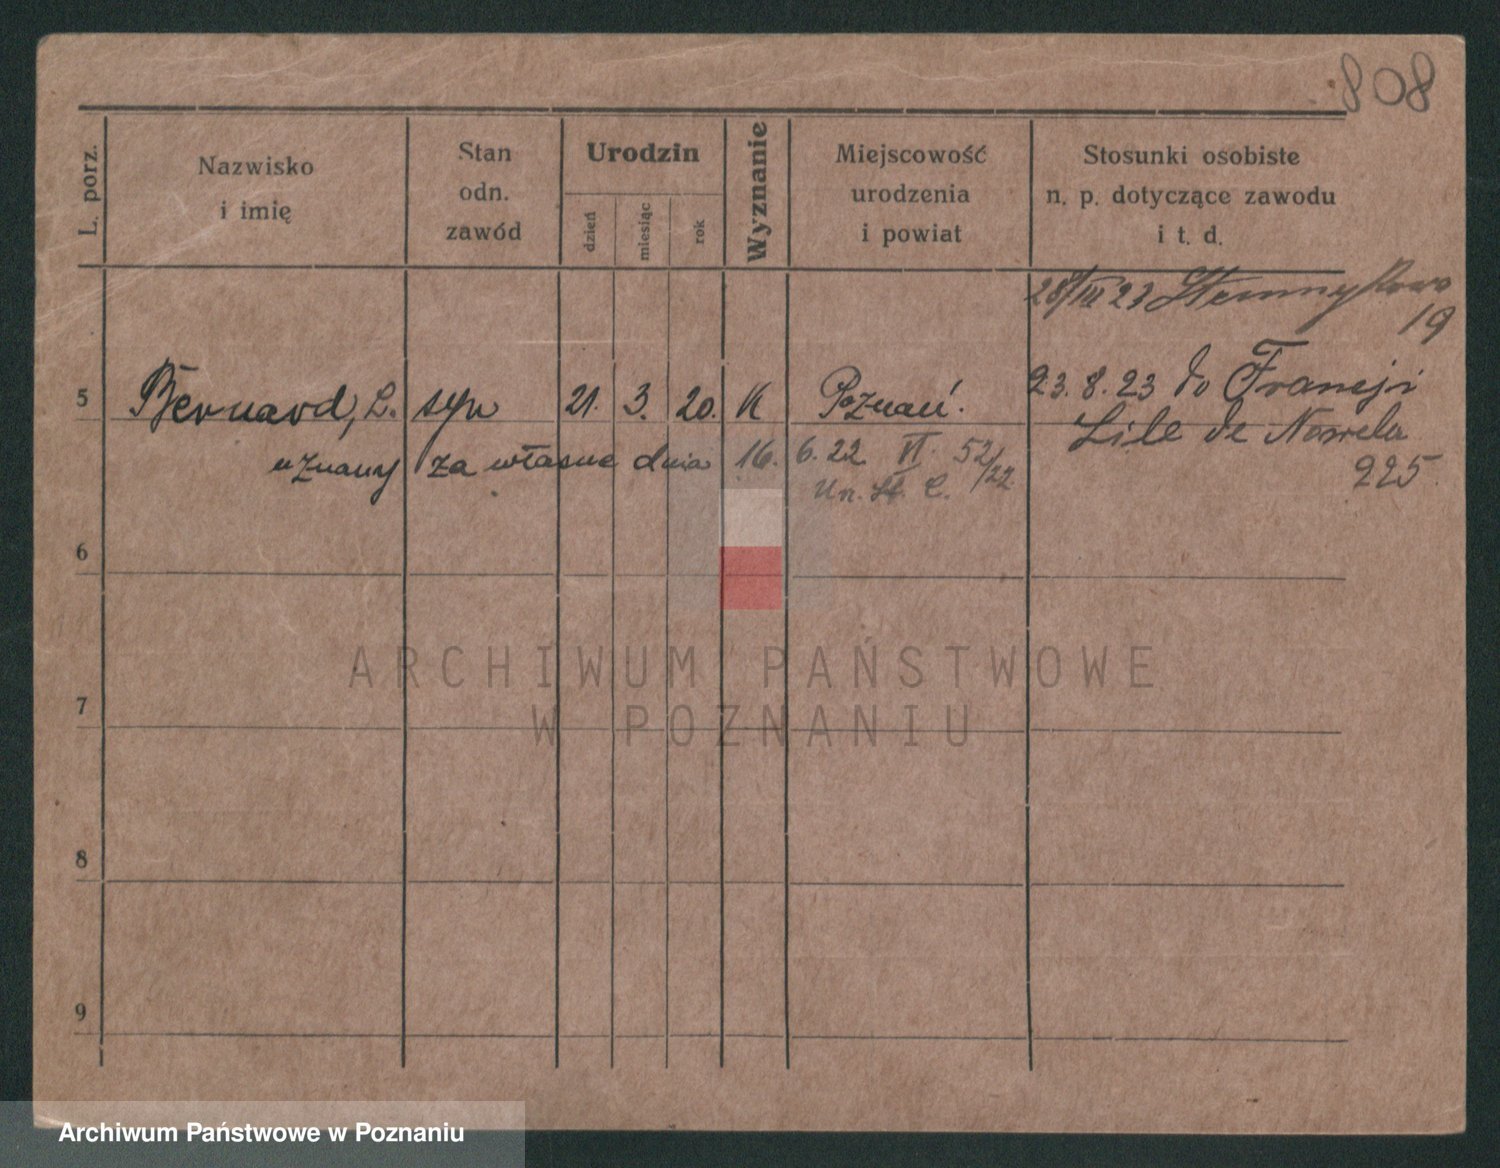 808
L. porz.
Nazwisko
i imię
Stan
odn.
zawód
Urodzin
dzień
miesiąc
rok
Wyznanie
Miejscowość
urodzenia
i powiat
Stosunki osobiste
n. p. dotyczące zawodu
i t. d.
28/III 23
19
5 Bernard, L. syn 21. 3. 20. K Poznań. 23. 8. 23 do Francji
Lile de
225.
uznany za własne dnia 16. 6. 22 VI. 52/22
Un. St. C.
6
7
8
9
ARCHIWUM PAŃSTWOWE
W POZNANIU
Archiwum Państwowe w Poznaniu